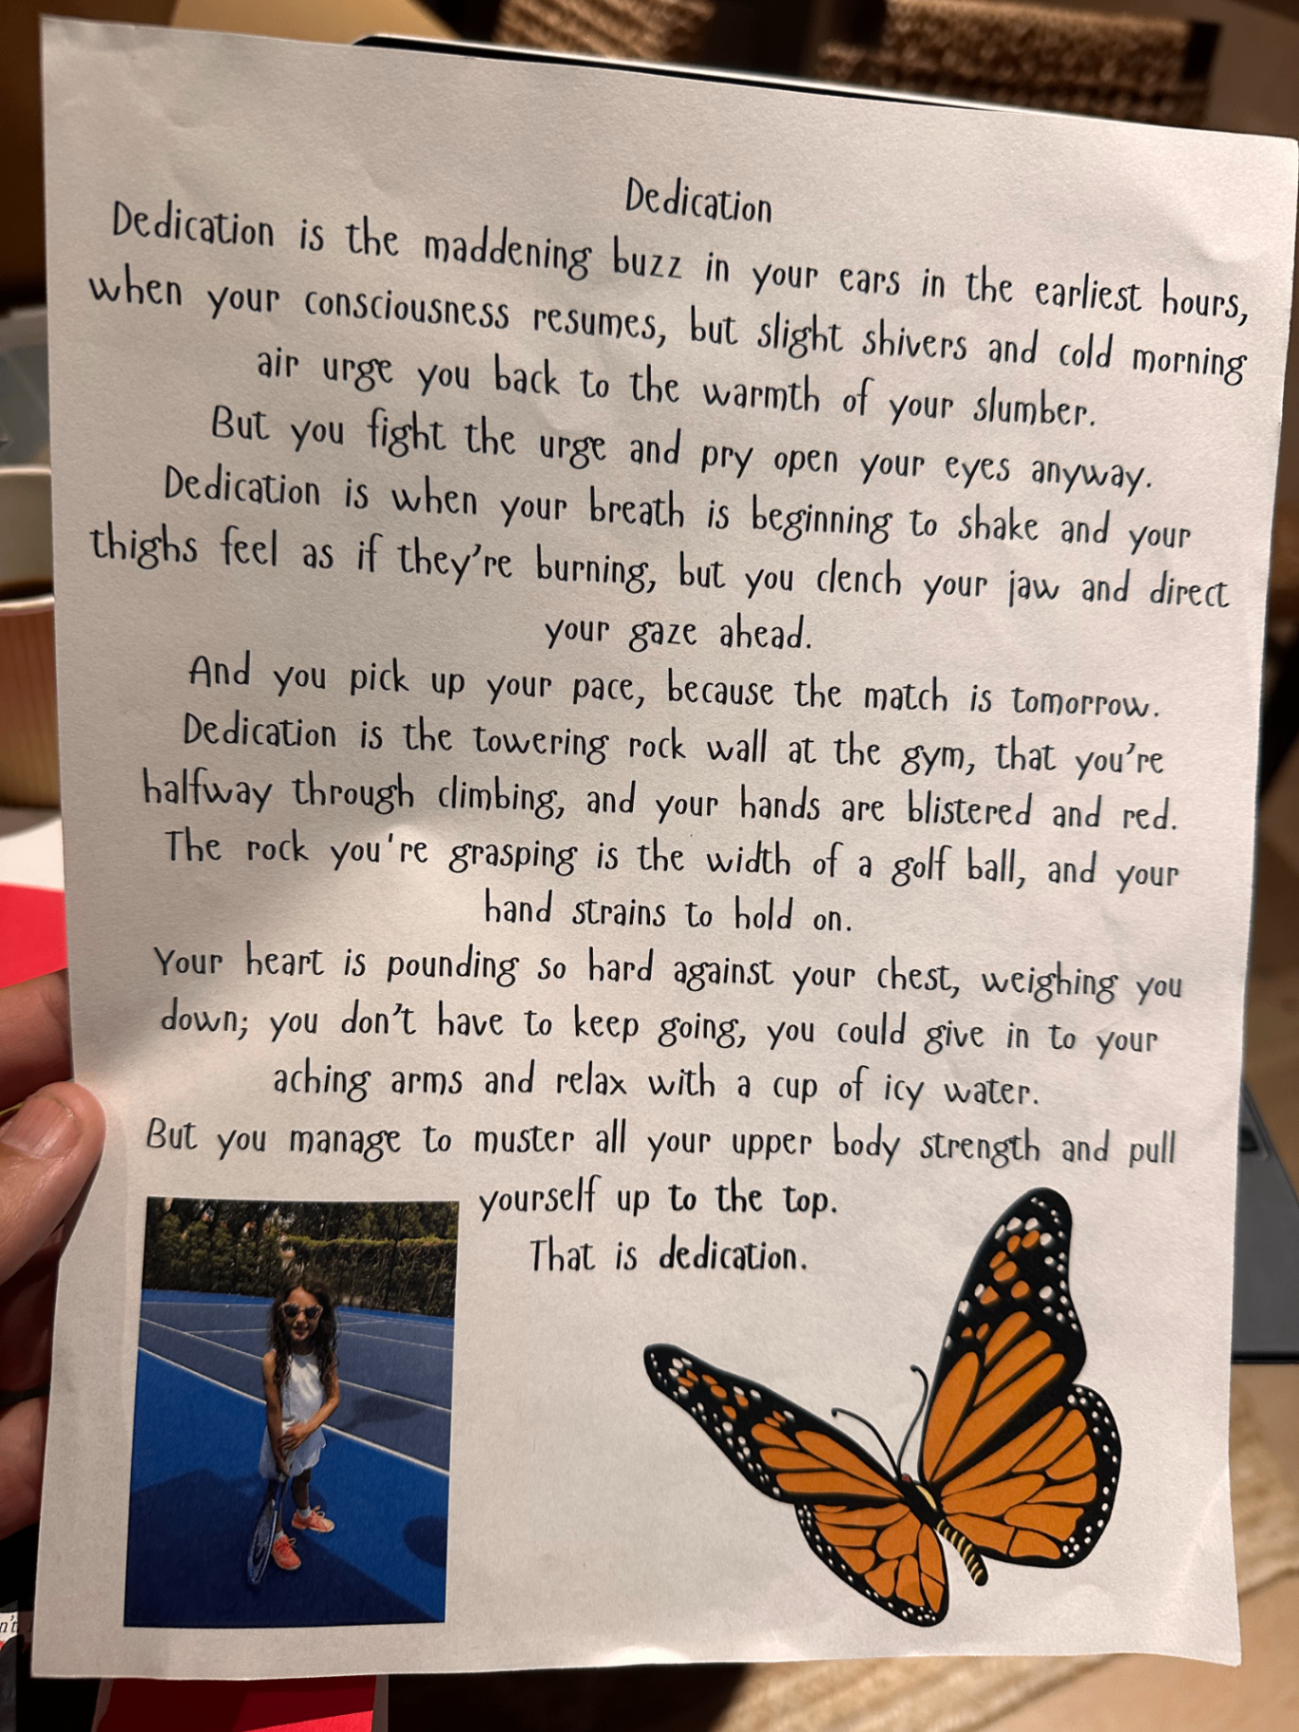 Dedication
Dedication is the maddening buzz in your ears in the earliest hours,
when your consciousness resumes, but slight shivers and cold morning
air urge you back to the warmth of your slumber.
But you fight the urge and pry open your eyes anyway.
Dedication is when your breath is beginning to shake and your
thighs feel as if they're burning, but you clench your jaw and direct
your gaze ahead.
And you pick up your pace, because the match is tomorrow.
Dedication is the towering rock wall at the gym, that you're
halfway through climbing, and your hands are blistered and red.
The rock you're grasping is the width of a golf ball, and your
hand strains to hold on.
Your heart is pounding so hard against your chest, weighing you
down; you don't have to keep going, you could give in to your
aching arms and relax with a cup of icy water.
But you manage to muster all your upper body strength and pull
yourself up to the top.
That is dedication.